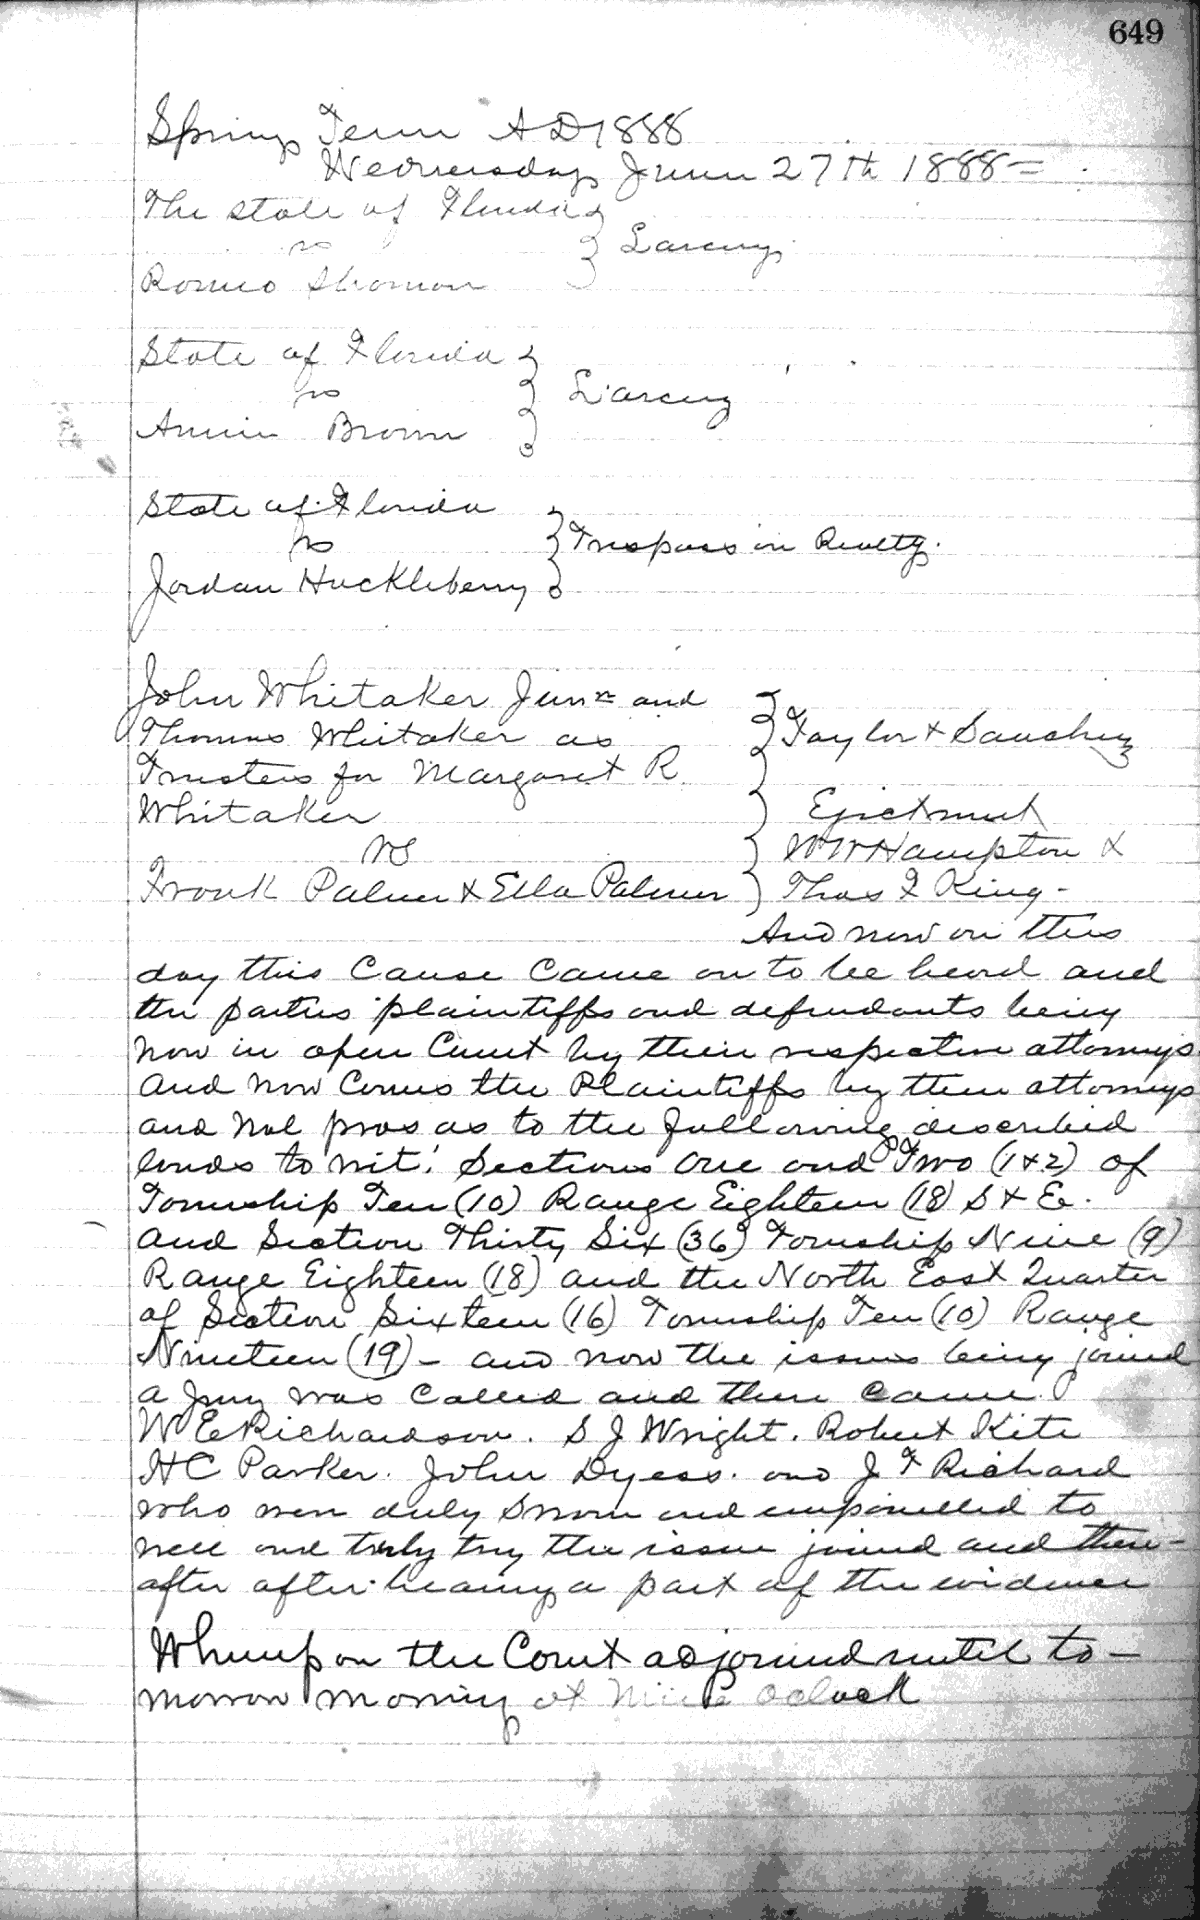 649
Spring Term AD 1888
Wednesday June 27th 1888=
The state of Florida
vs
Larceny
Romeo
State of Florida
vs
Larceny
Annie Brown
State of Florida
vs
Trespass on Realty.
Jordan Huckleberry
John Whitaker Junr and
Thomas Whitaker as
Trustees for Margaret R.
Whitaker
vs
Frank Palmer & Ella Palmer
Taylor & Sanchez
Ejectment
W W Hampton &
Thos F King -
And now on this
day this Cause Came on to be heard and
the parties plaintiffs and defendants being
now in open Court by their respective attorneys
and now Comes the Plaintiffs by their attorneys
and Nol pros as to the following described
lands to wit: Sections One and Two (1&2) of
Township Ten (10) Range Eighteen (18) S & E.
and Section Thirty Six (36) Township Nine (9)
Range Eighteen (18) and the North East Quarter
of Section Sixteen (16) Township Ten (10) Range
Nineteen (19) - and now the issues being joined
a jury was Called and then Came
W E Richardson. S J Wright. Robert Kite
H C Parker. John Dyess. and J F Richard
who were duly sworn and empanelled to
well and truly try the issue joined and there-
after after hearing a part of the evidence
Whereupon the Court adjourned until to-
morrow morning at Nine Oclock